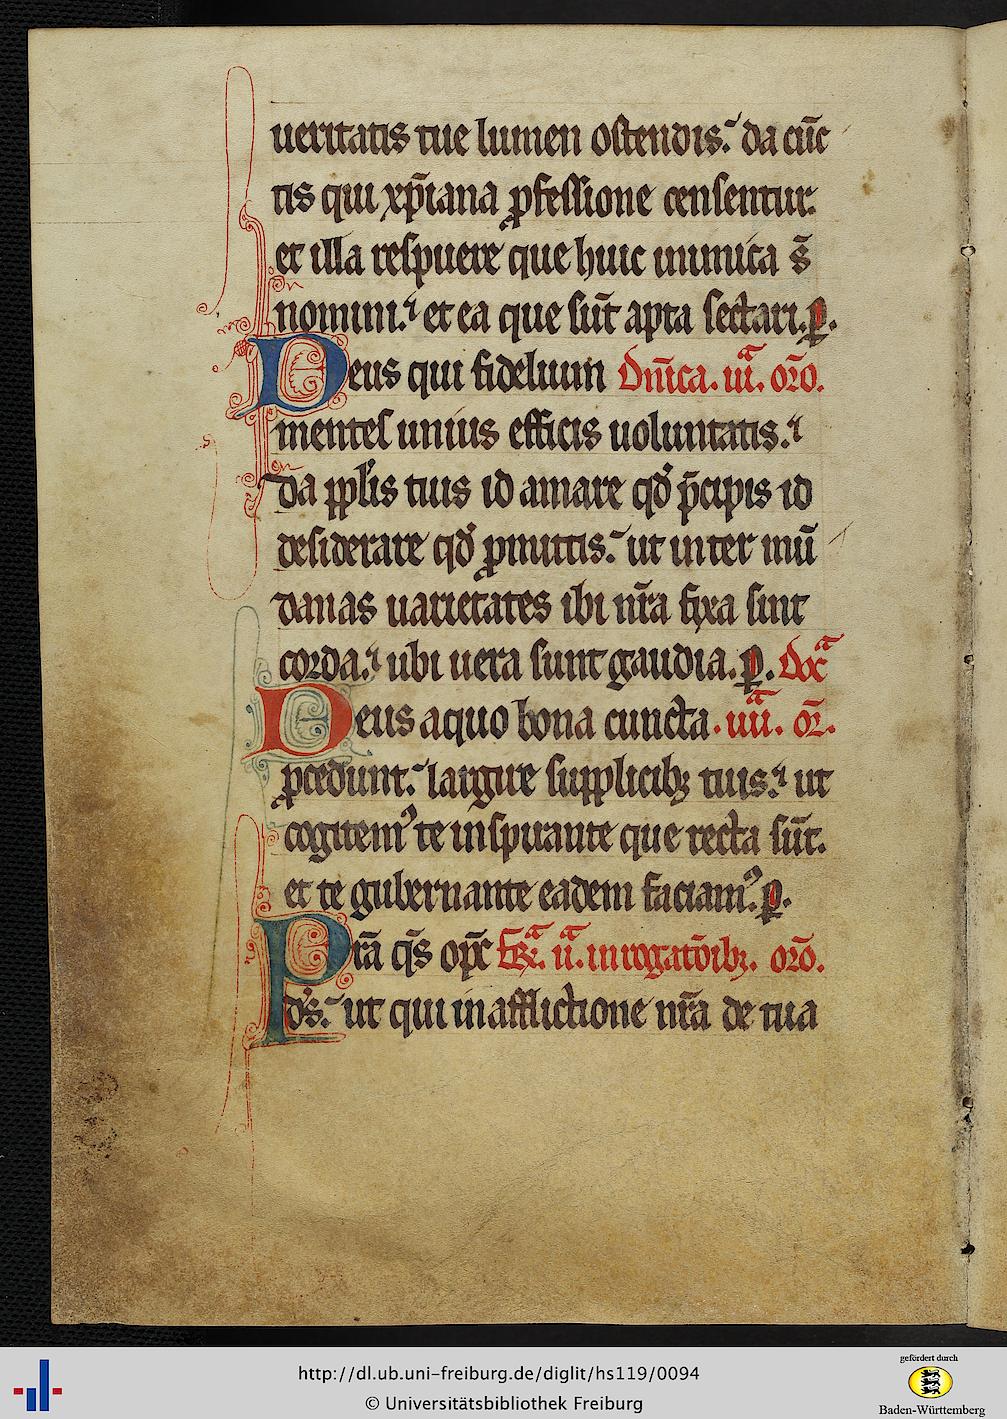 ueritatis tue lumen ostendis. da cūc
tis qui xp̄iana ꝓfessione censentur.
et illa respuere que huic inimica s̄
nomini. et ea que sūt apta sectari. ꝑ.
Deus qui fidelium Dn̄ica. iiiᵃ. oꝛ̄o.
mentes unius efficis uoluntatis.
da pplis tuis id amare qd̓ p̄cipis id
desiderare qd̓ ꝓmittis. ut inter mū
danas uarietates ibi nr̄a fixa sint
corda. ubi uera sunt gaudia. ꝑ. Dx̄ᵃ
Deus a quo bona cuncta. iiiiᵃ. oꝛ̄.
ꝓcedunt. largire supplicibꝫ tuis. ut
cogitemꝰ te inspirante que recta sūt.
et te gubernante eadem faciamꝰ. ꝑ.
Pr̄a qs̄ op̄c fꝛ̄. iiᵃ. in rogatōibꝫ. oꝛ̄o.
ds̓. ut qui in afflictione nr̄a de tua
http://dl.ub.uni-freiburg.de/diglit/hs119/0094
© Universitätsbibliothek Freiburg
gefördert durch
Baden-Württemberg